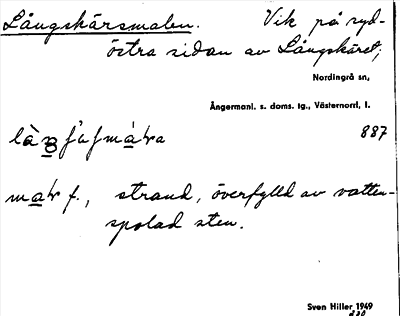 Långskärsmalen. Vik på syd-
östra sidan av Långskäret;
Nordingrå sn,
Ångermanl. s. doms. tg., Västernorrl. l.
887
mar f., strand, överfylld av vatten-
spolad sten.
Sven Hiller 1949